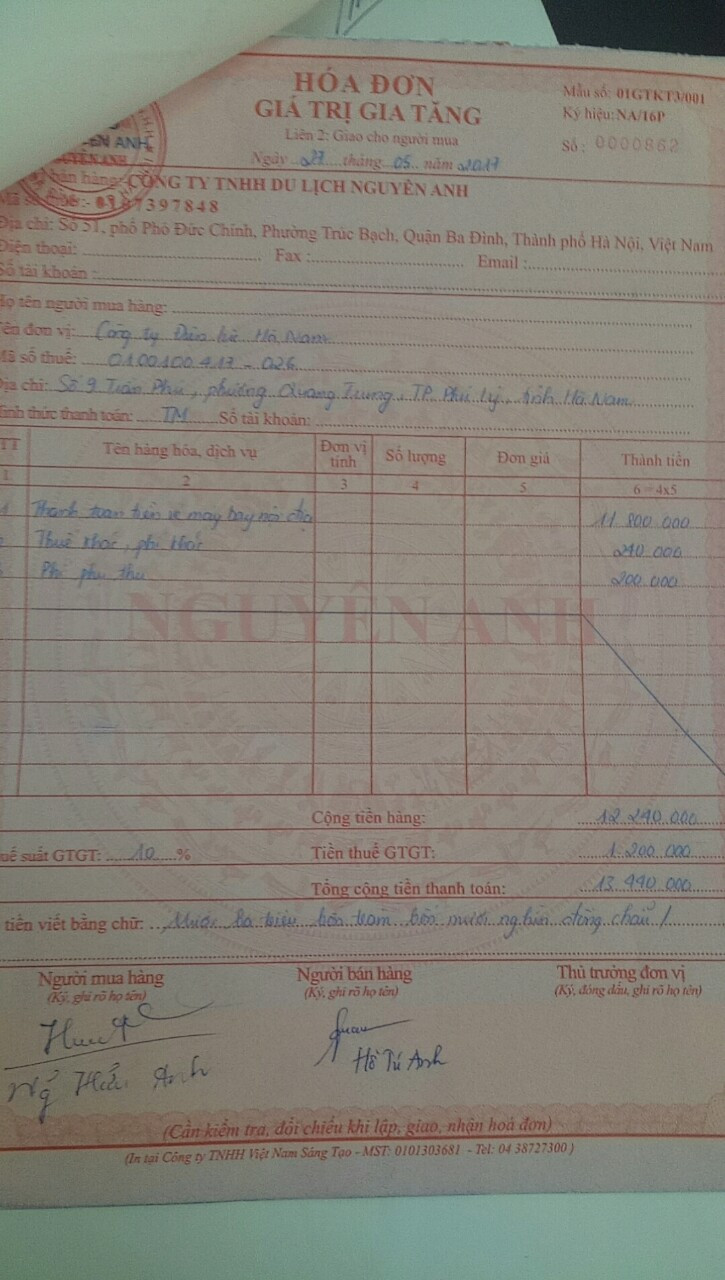 HÓA ĐƠN
GIÁ TRỊ GIA TĂNG
Liên 2: Giao cho người mua
Ngày 27 tháng 05 năm 2017
Mẫu số: 01GTKT3/001
Ký hiệu: NA/16P
Số: 0000862
bán hàng: CÔNG TY TNHH DU LỊCH NGUYÊN ANH
Mã số 7397848
Địa chỉ: Số 51, phố Phó Đức Chính, Phường Trúc Bạch, Quận Ba Đình, Thành phố Hà Nội, Việt Nam
Điện thoại: Fax: Email:
Số tài khoản:
Họ tên người mua hàng:
Tên đơn vị: Công ty Điện lực Hà Nam
Mã số thuế: 0100100417-026
Địa chỉ: Số 9 Trần Phú, phường Quang Trung, TP. Phủ Lý, tỉnh Hà Nam
Hình thức thanh toán: TM Số tài khoản:
TT Tên hàng hóa, dịch vụ Đơn vị tính Số lượng Đơn giá Thành tiền
1 2 3 4 5 6 = 4x5
1 Thanh toán tiền vé máy bay nội địa 11 800 000
Thuế khác, phí khác 240 000
Phí phụ thu 200 000
NGUYÊN ANH
Cộng tiền hàng: 12 240 000
uế suất GTGT: 10 % Tiền thuế GTGT: 1 200 000
Tổng cộng tiền thanh toán: 13 440 000
tiền viết bằng chữ: Mười ba triệu bốn trăm bốn mươi nghìn đồng chẵn /
Người mua hàng Người bán hàng Thủ trưởng đơn vị
(Ký, ghi rõ họ tên) (Ký, ghi rõ họ tên) (Ký, đóng dấu, ghi rõ họ tên)
Hồ Tú Anh
(Cần kiểm tra, đối chiếu khi lập, giao, nhận hoá đơn)
(In tại Công ty TNHH Việt Nam Sáng Tạo - MST: 0101303681 - Tel: 04 38727300)